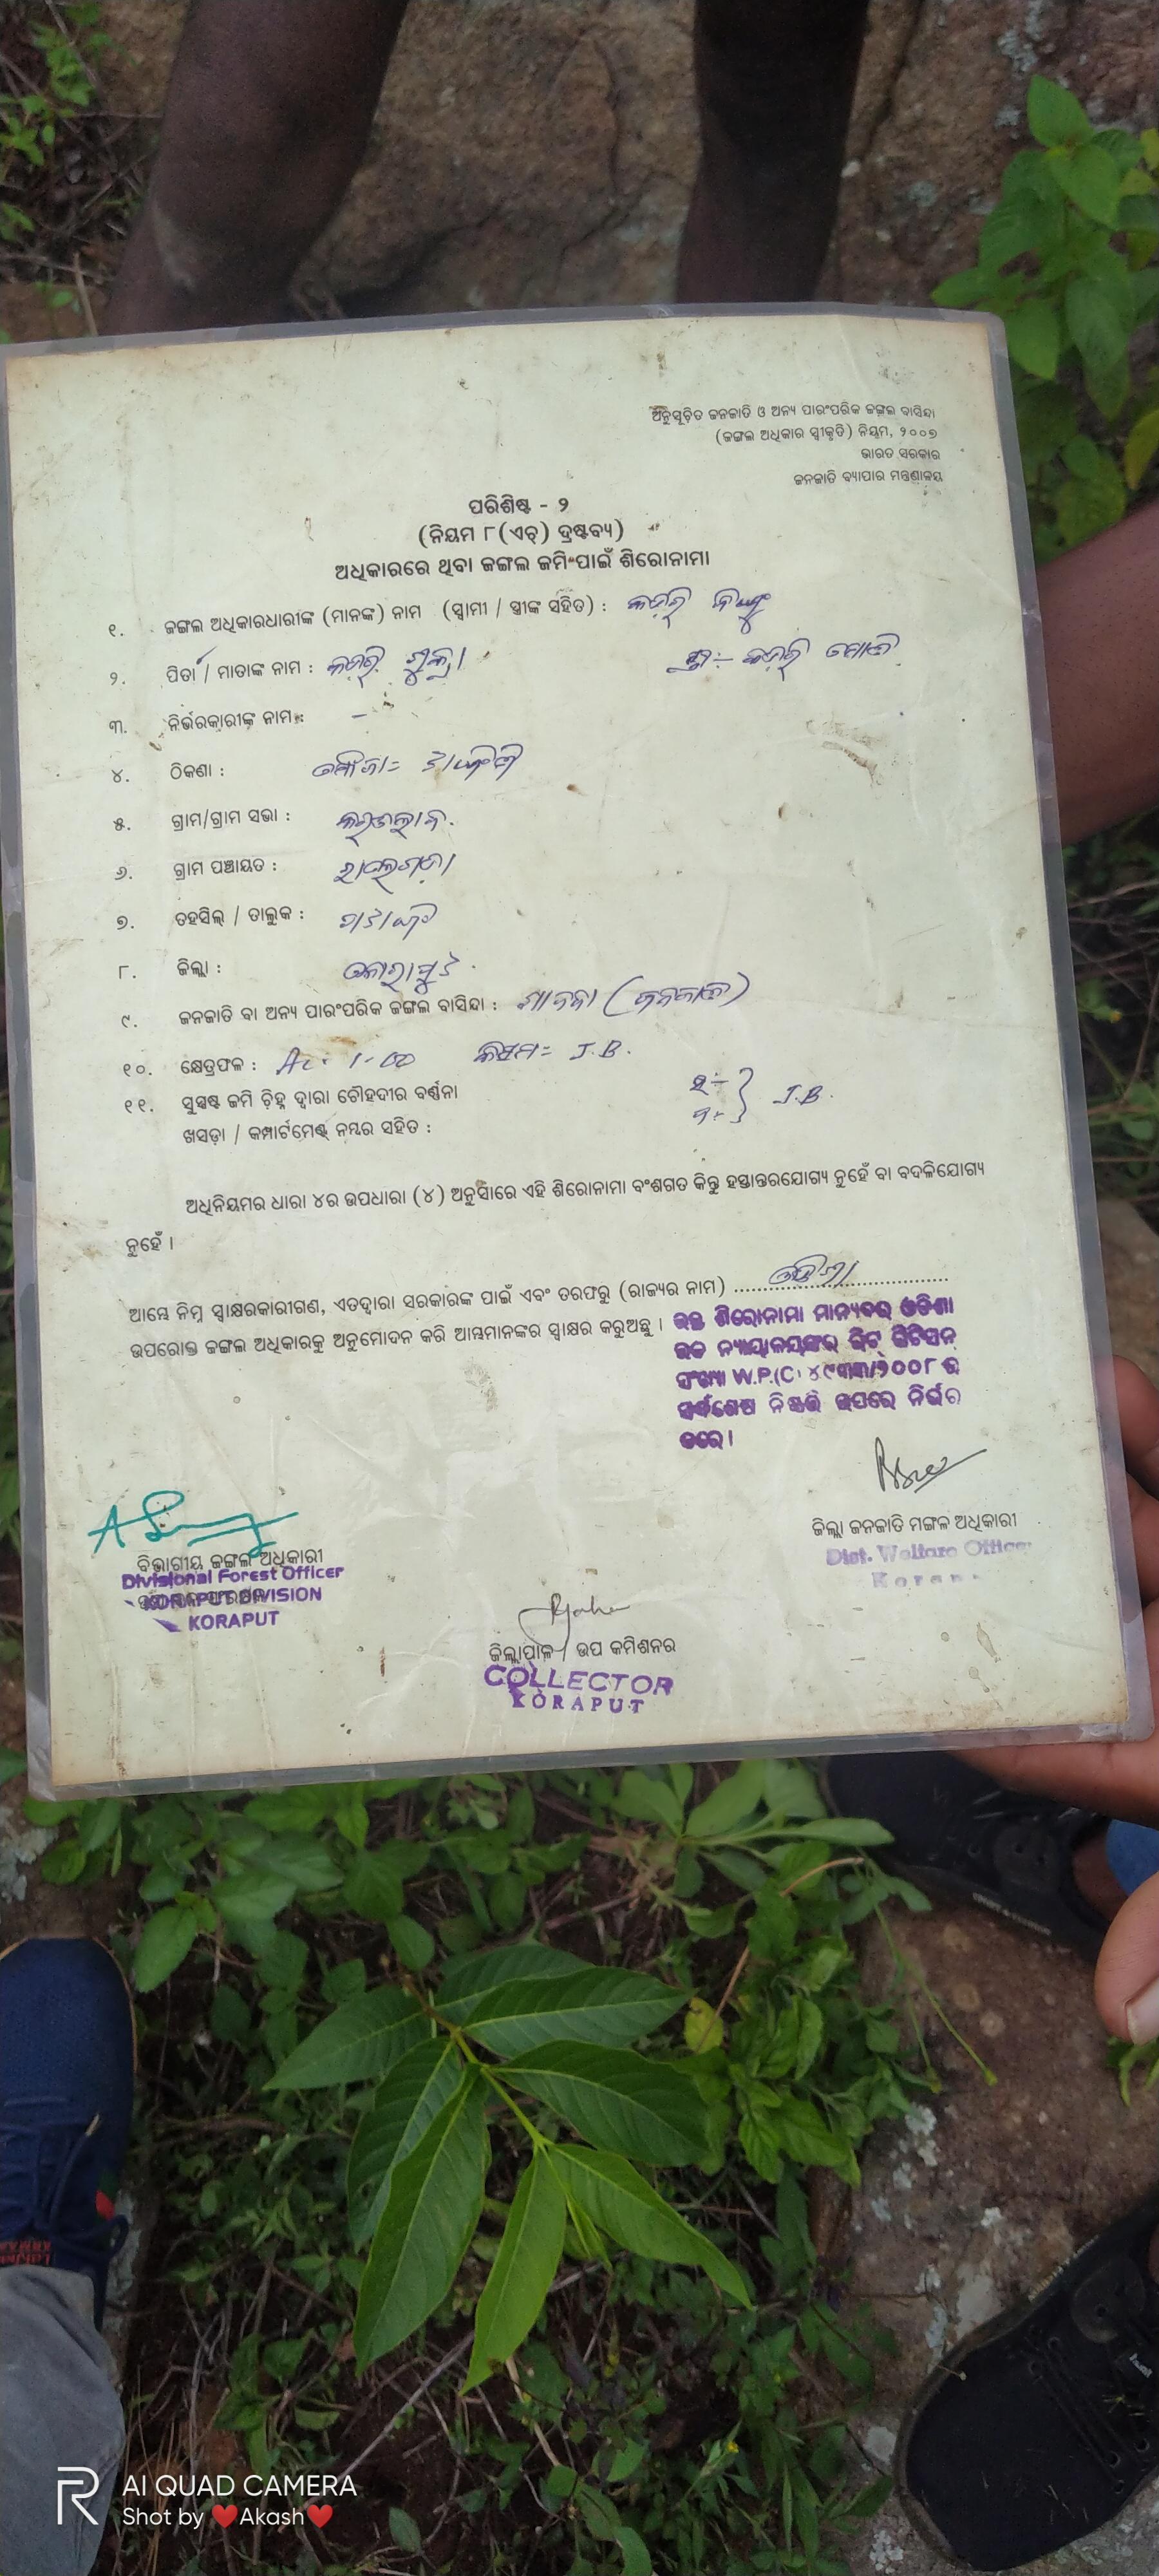 ଅନୁସୂଚିତ ଜନଜାତି ଓ ଅନ୍ୟ ପାରଂପରିକ ଜଙ୍ଗଲ ବାସିନ୍ଦା
(ଜଙ୍ଗଲ ଅଧିକାର ସ୍ୱୀକୃତି) ନିୟମ, ୨୦୦୭
ଭାରତ ସରକାର
ଜନଜାତି ବ୍ୟାପାର ମନ୍ତ୍ରଣାଳୟ
ପରିଶିଷ୍ଟ - ୨
(ନିୟମ ୮(ଏଚ୍) ଦ୍ରଷ୍ଟବ୍ୟ)
ଅଧିକାରରେ ଥିବା ଜଙ୍ଗଲ ଜମି ପାଇଁ ଶିରୋନାମା
୧. ଜଙ୍ଗଲ ଅଧିକାରଧାରୀଙ୍କ (ମାନଙ୍କ) ନାମ (ସ୍ୱାମୀ / ସ୍ତ୍ରୀଙ୍କ ସହିତ) :
୨. ପିତା / ମାତାଙ୍କ ନାମ :
୩. ନିର୍ଭରକାରୀଙ୍କ ନାମ : –
୪. ଠିକଣା : ମୌଜା=
୫. ଗ୍ରାମ/ଗ୍ରାମ ସଭା :
୬. ଗ୍ରାମ ପଞ୍ଚାୟତ :
୭. ତହସିଲ୍ / ତାଲୁକ :
୮. ଜିଲ୍ଲା : କୋରାପୁଟ
୯. ଜନଜାତି ବା ଅନ୍ୟ ପାରଂପରିକ ଜଙ୍ଗଲ ବାସିନ୍ଦା : (ଜନଜାତି)
୧୦. କ୍ଷେତ୍ରଫଳ : Ac. 1-00 କିସମ= J.B.
୧୧. ସୁସ୍ପଷ୍ଟ ଜମି ଚିହ୍ନ ଦ୍ୱାରା ଚୌହଦୀର ବର୍ଣ୍ଣନା J.B.
ଖସଡ଼ା / କମ୍ପାର୍ଟମେଣ୍ଟ ନମ୍ବର ସହିତ :
ଅଧିନିୟମର ଧାରା ୪ର ଉପଧାରା (୪) ଅନୁସାରେ ଏହି ଶିରୋନାମା ବଂଶଗତ କିନ୍ତୁ ହସ୍ତାନ୍ତରଯୋଗ୍ୟ ନୁହେଁ ବା ବଦଳିଯୋଗ୍ୟ
ନୁହେଁ ।
ଆମ୍ଭେ ନିମ୍ନ ସ୍ୱାକ୍ଷରକାରୀଗଣ, ଏତଦ୍ୱାରା ସରକାରଙ୍କ ପାଇଁ ଏବଂ ତରଫରୁ (ରାଜ୍ୟର ନାମ) ଓଡ଼ିଶା
ଉପରୋକ୍ତ ଜଙ୍ଗଲ ଅଧିକାରକୁ ଅନୁମୋଦନ କରି ଆମ୍ଭମାନଙ୍କର ସ୍ୱାକ୍ଷର କରୁଅଛୁ ।
ଉକ୍ତ ଶିରୋନାମା ମାନ୍ୟବର ଓଡିଶା
ଉଚ୍ଚ ନ୍ୟାୟାଳୟଙ୍କର ରିଟ୍ ପିଟିସନ୍
ସଂଖ୍ୟା W.P.(C) ୪୯୩୩/୨୦୦୮ ର
ସର୍ବଶେଷ ନିଷ୍ପତ୍ତି ଉପରେ ନିର୍ଭର
କରେ ।
ବିଭାଗୀୟ ଜଙ୍ଗଲ ଅଧିକାରୀ
Divisional Forest Officer
KORAPUT DIVISION
KORAPUT
ଜିଲ୍ଲା ଜନଜାତି ମଙ୍ଗଳ ଅଧିକାରୀ
Dist. Welfare Officer
ଜିଲ୍ଲାପାଳ / ଉପ କମିଶନର
COLLECTOR
KORAPUT
AI QUAD CAMERA
Shot by ❤️Akash❤️